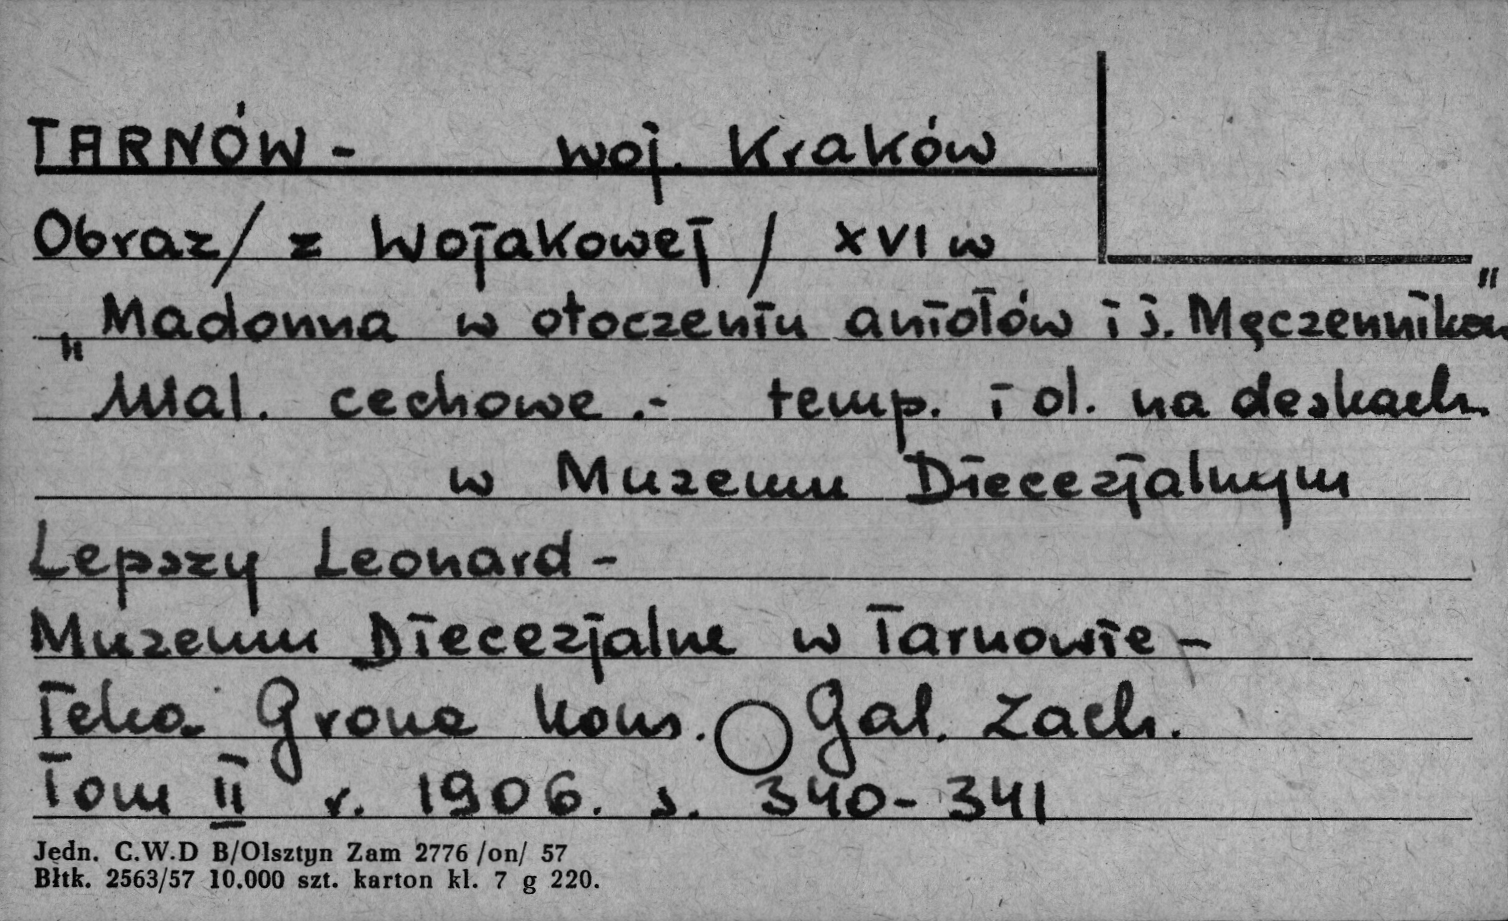 TARNÓW - woj. Kraków
Obraz / z Wojakowej / XVI w
„Madonna w otoczeniu aniołów i ś. Męczenników"
Mal. cechowe .- temp. i ol. na deskach
w Muzeum Diecezjalnym
Lepszy Leonard -
Muzeum Diecezjalne w Tarnowie -
Teka Grona kons. Gal. Zach.
Tom II r. 1906. s. 340-341
Jedn. C.W.D B/Olsztyn Zam 2776 /on/ 57
Błtk. 2563/57 10.000 szt. karton kl. 7 g 220.